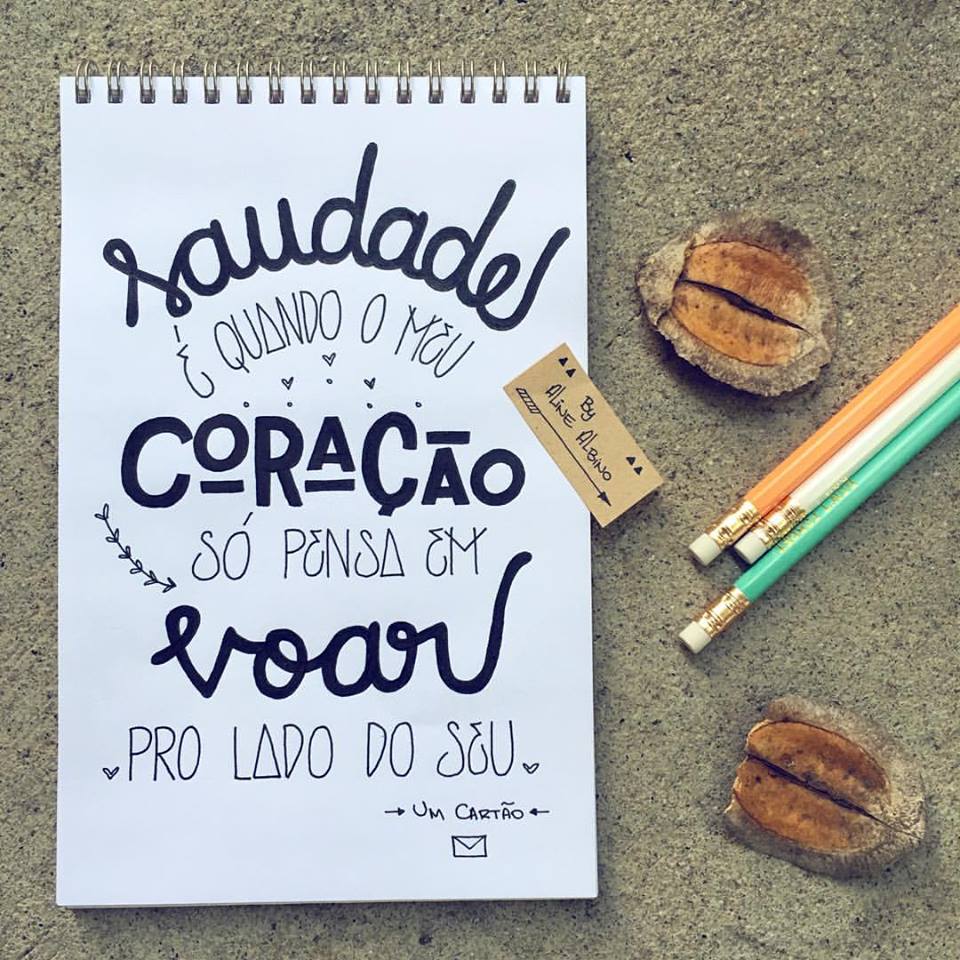 saudade
É QUANDO O MEU
CORAÇÃO
SÓ PENSA EM
voar
PRO LADO DO SEU
UM CARTÃO
BY
ALINE ALBINO